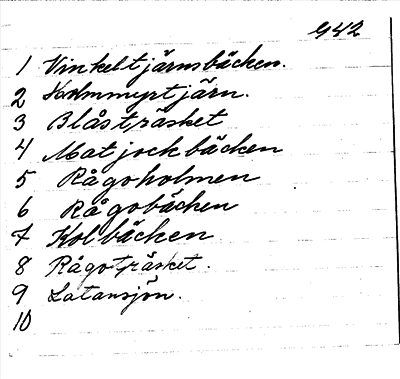 942
1 Vinkeltjärnsbäcken.
2 Holmmyrtjärn.
3 Blåsträsket
4 Matjockbäcken
5 Rågoholmen
6 Rågobäcken
7 Kolbäcken
8 Rågoträsket.
9 Latansjön.
10